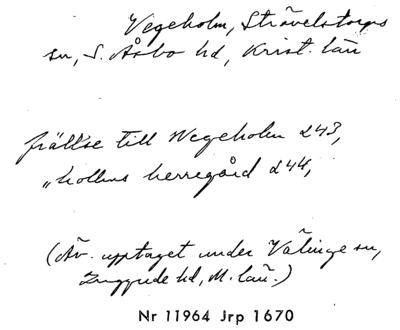 Vegeholm, Strövelstorps
sn, S. Åsbo hd, Krist. län
frälse till Wegeholm 243,
"hollms herregård 244,
(Äv. upptaget under Välinge sn,
Luggude hd, M. län.)
Nr 11964 Jrp 1670